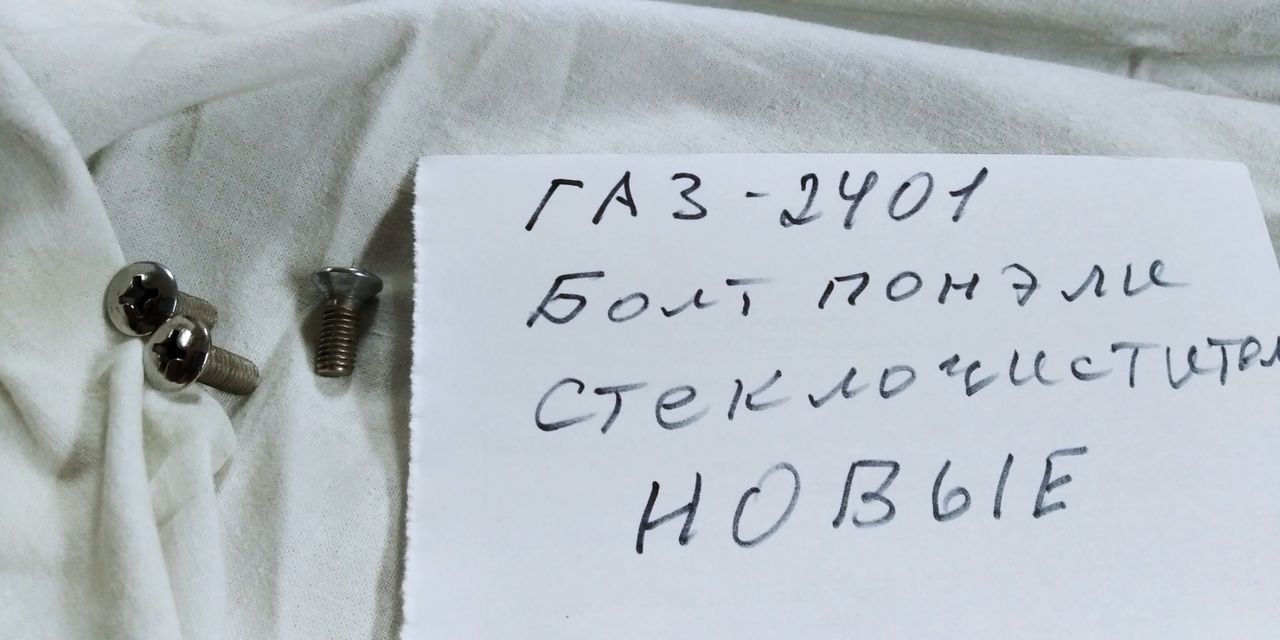 ГАЗ-2401
Болт понэли
стеклочистител
НОВЫЕ